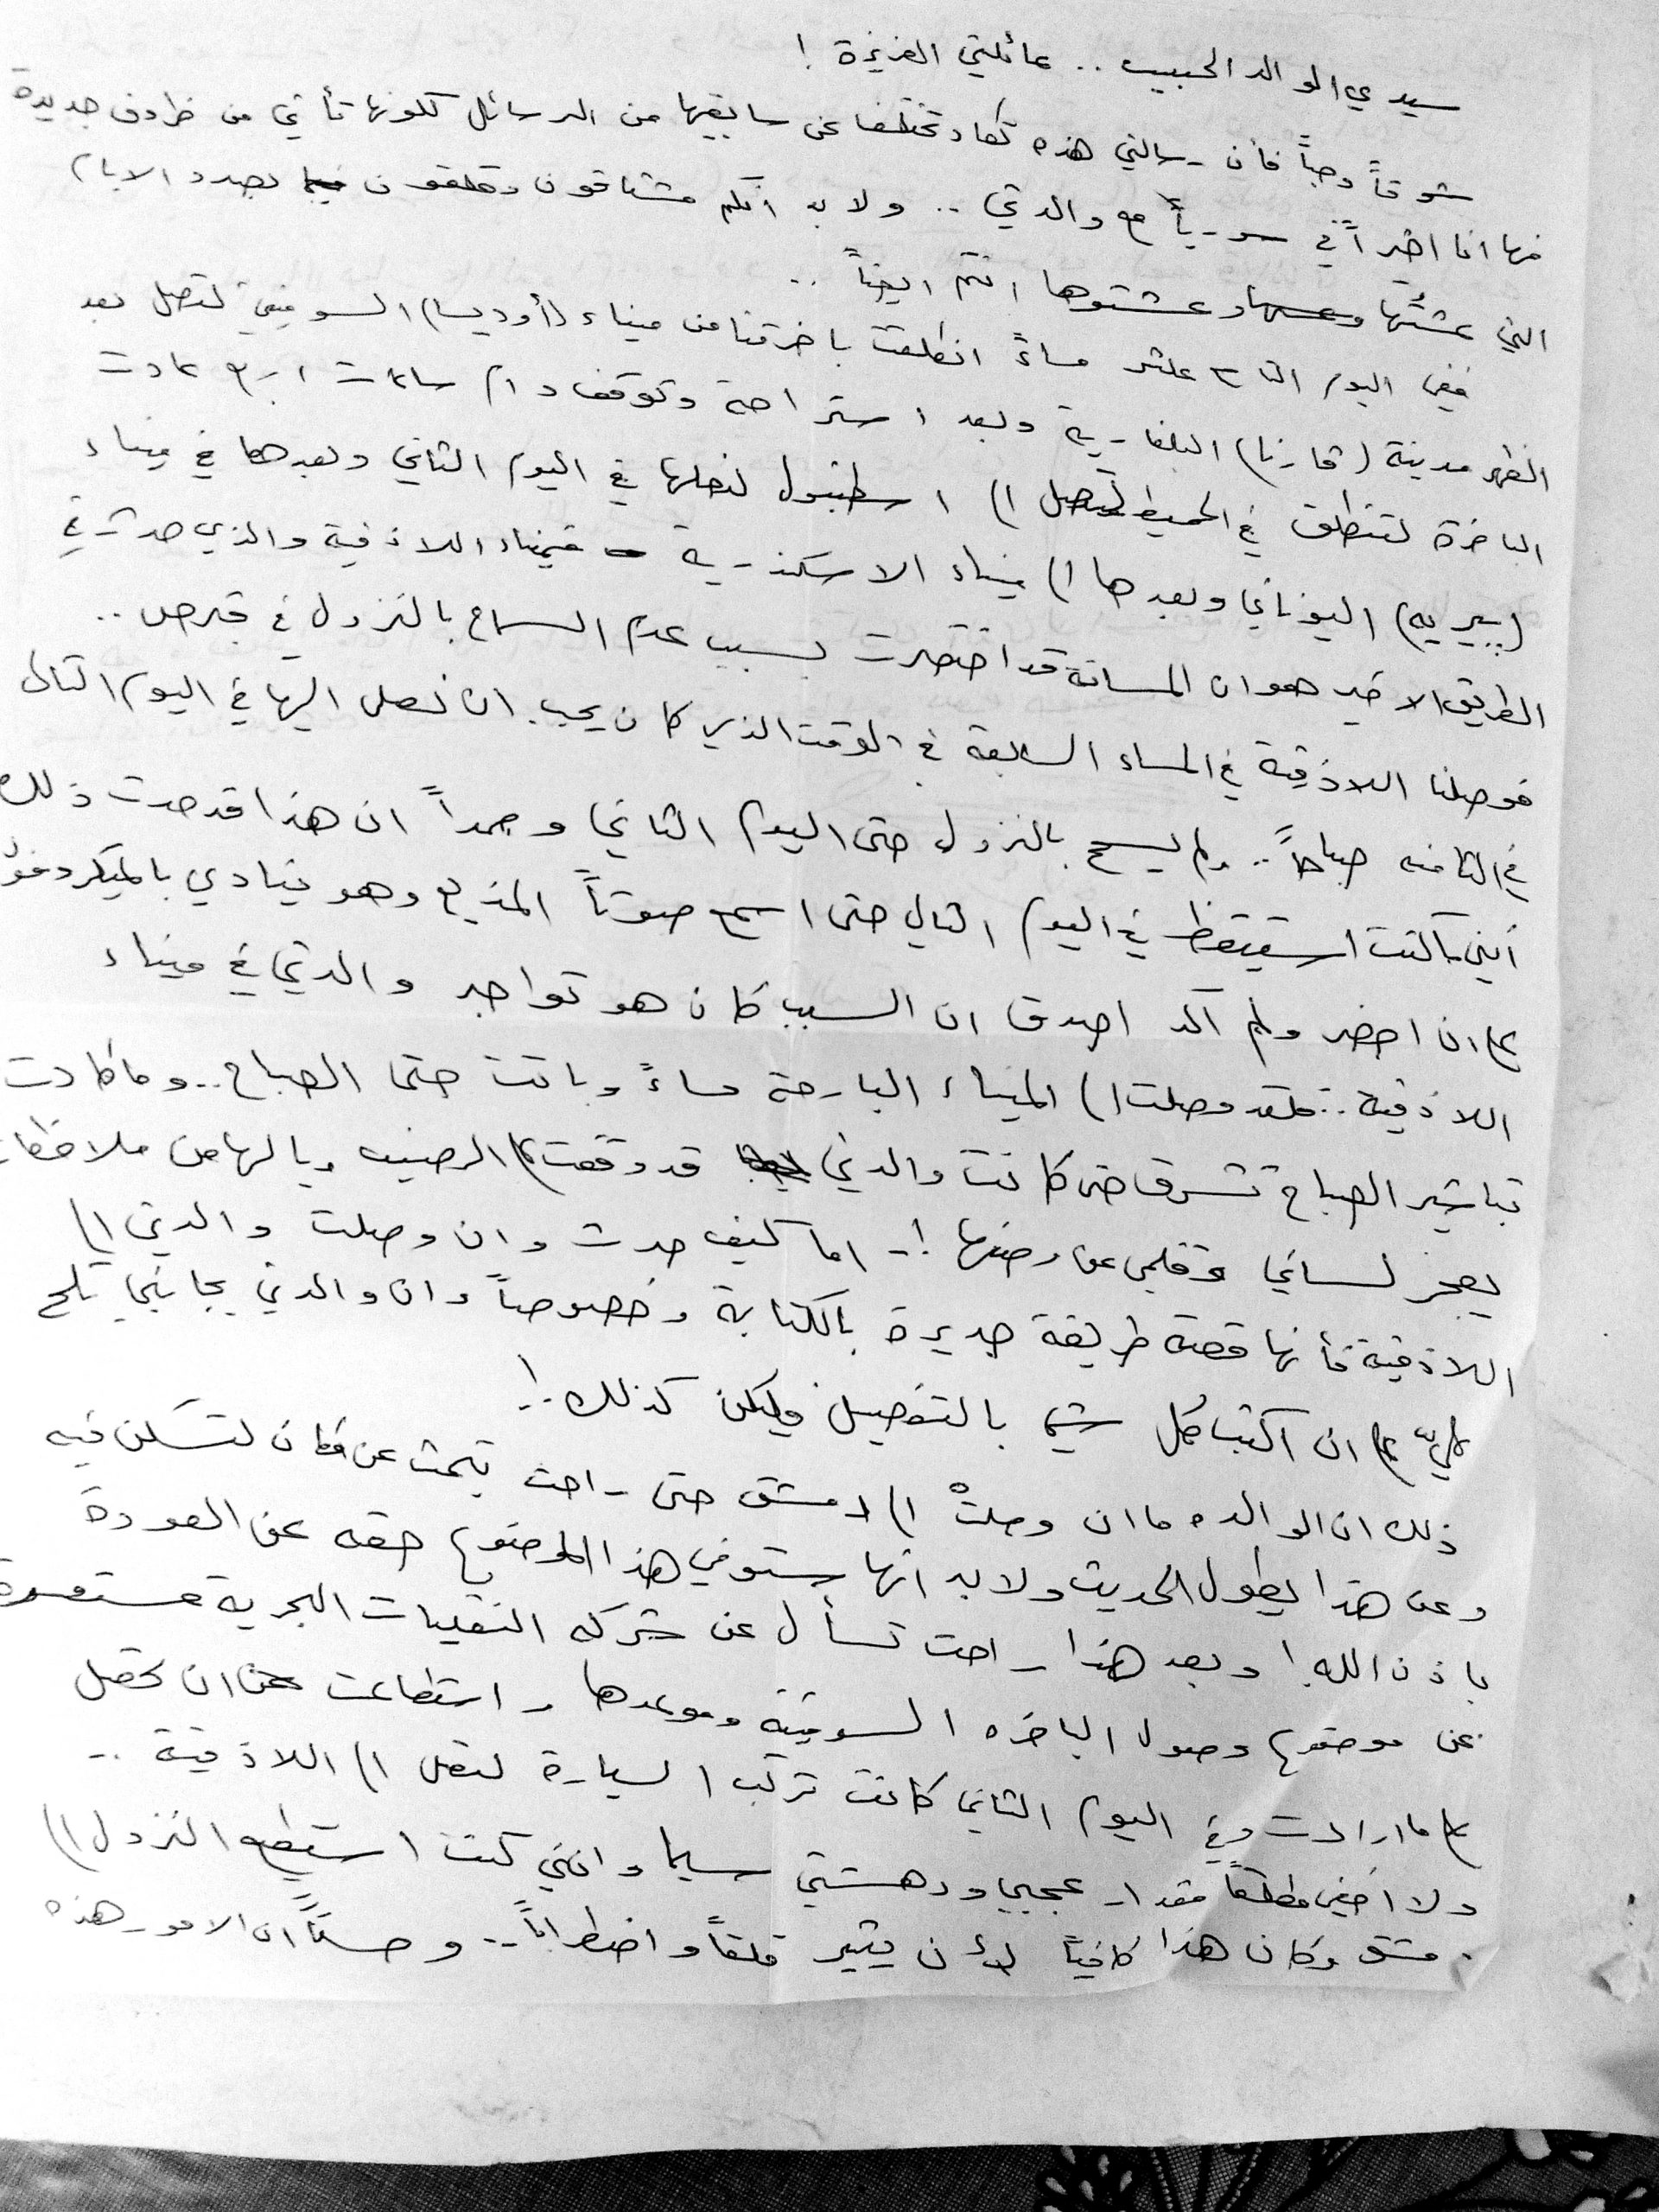 سيدي الوالد الحبيب .. عائلتي العزيزة !
شوقاً وحباً فأن رسالتي هذه تكاد تختلف عن سابقيها من الرسائل كلونها تأتي من ظروف جديدة
فها انا اخيراً في سوريا مع والدتي .. ولابد انكم مشتاقون وقلقون بصدد الايام
التي عشتُها وعشتوها انتم ايضاً ..
ففي اليوم التاسع عشر مساءً انطلقت باخرتنا من ميناء (أوديسا) السوفيتي لتصل بعد
الظهر مدينة (فارنا) البلغارية وبعد استراحة وتوقف دام ساعات اربع عادت
الباخرة لتنطلق في المحيط لتصل الى اسطنبول لنصلها في اليوم الثاني وبعدها في ميناء
(بيريه) اليوناني وبعدها الى ميناء الاسكندرية فميناء اللاذقية والذي حدث في
الطريق الاخير هو ان المسافة قد اختصرت بسبب عدم السماح بالنزول في قبرص ..
فوصلنا اللاذقية في المساء السابعة في الوقت الذي كان يجب ان نصل اليها في اليوم التالي
في الثامنه صباحاً .. ولم يسمح بالنزول حتى اليوم الثاني وحمداً ان هذا قد حدث ذلك
أنني ما كنت استيقظ في اليوم التالي حتى اسمع صوتاً المذيع وهو ينادي بالميكروفون
على ان احضر ولم اكد اصدق ان السبب كان هو تواجد والدتي في ميناء
اللاذقية .. فلقد وصلت الى الميناء البارحة مساءً وباتت حتى الصباح .. وما كادت
تباشير الصباح تشرق حتى كانت والدتي قد وقفت على الرصيف ويالها من ملاحظات
يعجز لساني وقلمي عن وصفها ! .. اما كيف حدث وان وصلت والدتي الى
اللاذقية فأنها قصة طريفة جديرة بالكتابة وخصوصاً وان والدتي بجانبي تلح
عليّ على ان اكتب كل شيء بالتفصيل وليكن كذلك .. !
ذلك ان الوالده ما ان وصلتْ الى دمشق حتى راحت تبحث عن مكان لتسكن فيه
وعن هذا يطول الحديث ولابد انها ستوفي هذا الموضوع حقه عن العودة
باذن الله ! وبعد هذا راحت تسأل عن شركه النقليات البحرية مستفسرة
عن موضوع وصول الباخره السوفيتية وموعدها و استطاعت ان تحصل
على ما ارادت وفي اليوم الثاني كانت تركب السيارة لتصل الى اللاذقية ..
ولا أخفي مطلقاً مقدار عجبي ودهشتي سيما وانني كنت استطيع النزول الى
دمشق وكان هذا كافياً لأن يثير قلقاً واضطراباً .. وحسناً ان الامور هذه